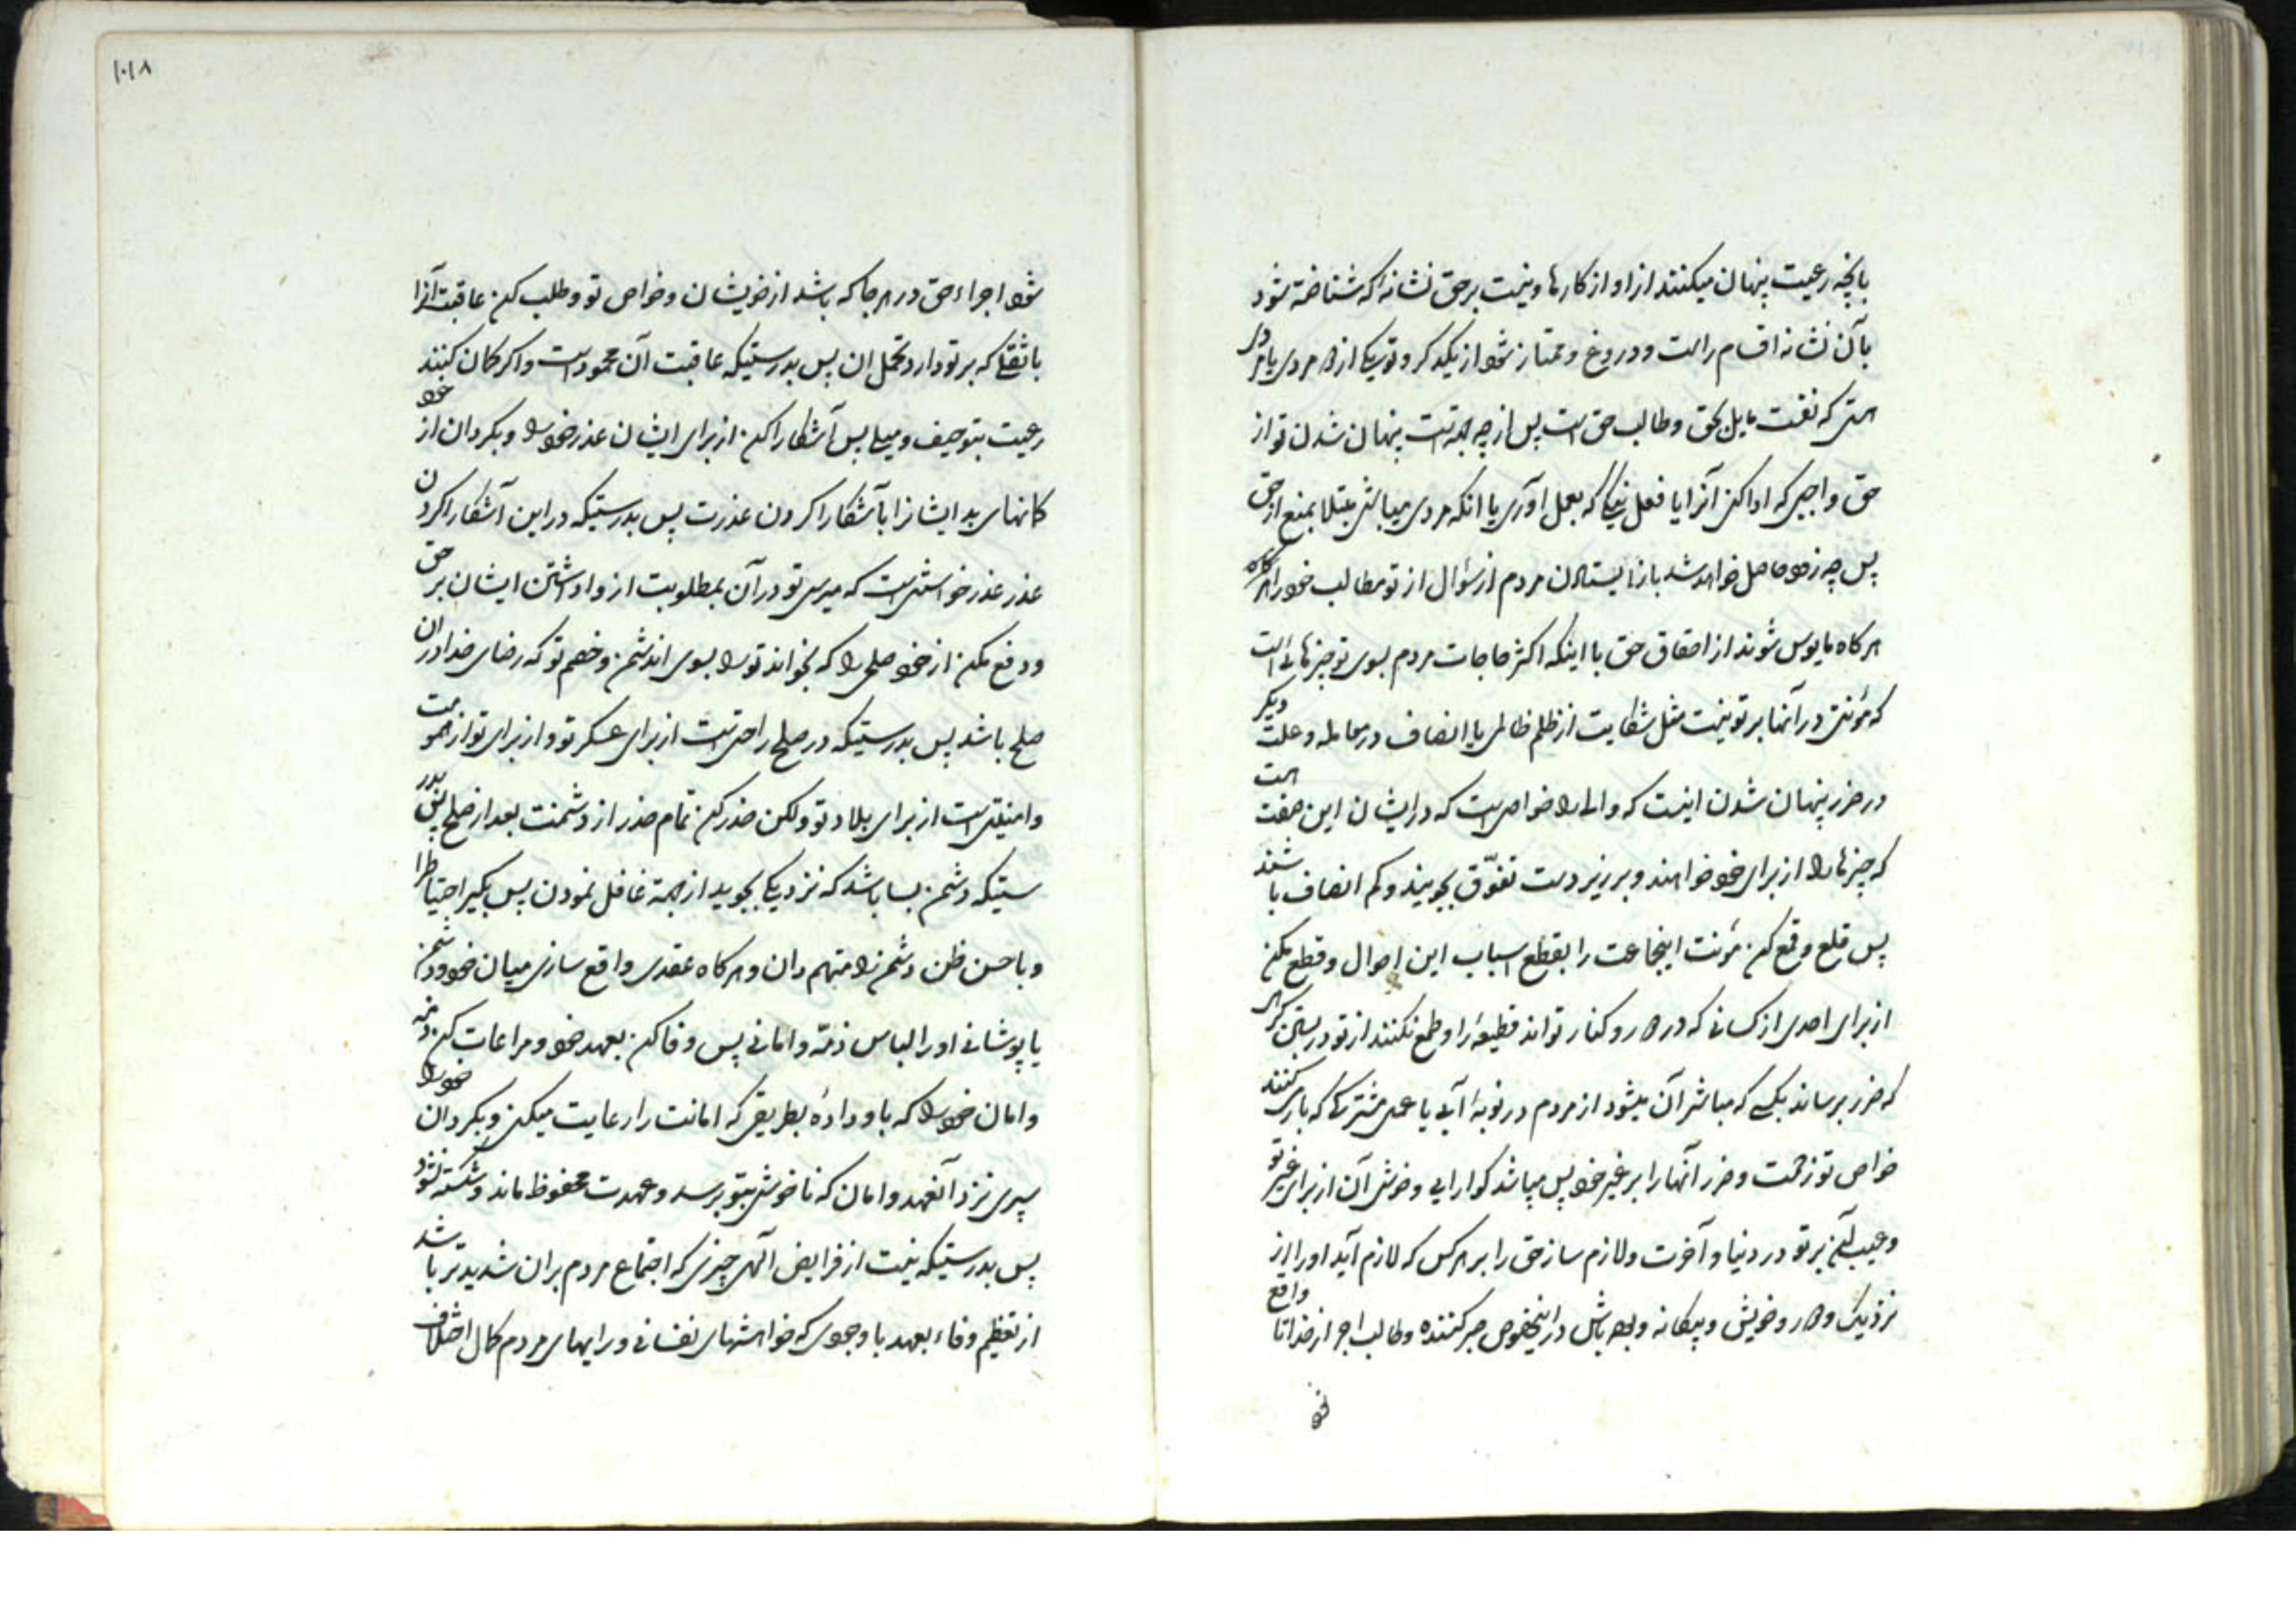 بانچه رعیت پنهان میکنند از او از کارها و نیست بر حق نشانۀ که شناخته شود
بآن نشانه اقسام راست و دروغ و ممتاز شود از یکدیگر و تو یکی از دو مردی یا مردی
هستی که نفست مایل بحق و طالب حق است پس از چه جهتست پنهان شدن تو از
حق واجبی که ادا کنی آنرا یا فعل نیکی که بعمل اوری یا انکه مردی میباشی مبتلا بمنع از حق
پس چه زود حاصل خواهد شد باز ایستادن مردم از سؤال از تو مطالب خود را هرگاه
هرگاه مایوس شوند از احقاق حق با اینکه اکثر حاجات مردم بسوی تو چیزهائی است
که مؤنتی در آنها بر تو نیست مثل شکایت از ظلم ظالمی یا انصاف در معامله و علت دیگر
در ضرر پنهان شدن اینست که والی را خواصی است که در ایشان این صفت است
که چیزها را از برای خود خواهند و بر زیردست تفوّق بجویند و کم انصاف باشند
پس قلع و قمع کن مؤنت اینجماعت را بقطع اسباب این احوال و قطع مکن
از برای احدی از کسانی که در دور و کنار تواند قطیعۀ را و طمع نکنند از تو در بستن
که ضرر برساند بکسی که مباشر آن میشود از مردم در نوبۀ آبی یا عمل مشترکی که بار کنند
خواص تو زحمت و ضرر آنها را بر غیر خود پس میباشد گوارایی و خوشی آن از برای غیر تو
و عیب آن بر تو در دنیا و آخرت و لازم ساز حق را بر هر کس که لازم آید او را از
نزدیک و دور و خویش و بیگانه و بوده باش در اینخصوص صبر کننده و طالب اجر از خدا تا واقع
شود
۱۰۱۸
شود اجراء حق در هر جا که باشد از خویشان و خواص تو و طلب کن عاقبت آنرا
با ثقلی که بر تو دارد تحمل ان پس بدرستیکه عاقبت آن محمود است و اگر گمان کنند
رعیت بتو حیف و میلی پس آشکارا کن از برای ایشان عذر خود را و بگردان از خود
گمانهای بد ایشانرا بآشکارا کردن عذرت پس بدرستیکه در این آشکارا کردن
عذر عذر خواستنی است که میرسی تو در آن بمطلوبت از واداشتن ایشان بر حق
و دفع مکن از خود صلحی را که بخواند تو را بسوی ان دشمن و خصم تو که رضای خدا در ان
صلح باشد پس بدرستیکه در صلح راحتی است از برای عسکر تو و از برای تو از همومت
و امنیتی است از برای بلاد تو ولکن حذر کن تمام حذر از دشمنت بعد از صلح پس بدر
ستیکه دشمن بسا باشد که نزدیکی بجوید از جهة غافل نمودن پس بگیر احتیاط را
و با حسن ظن دشمن را متهم دان و هرگاه عقدی واقع سازی میان خود و دشمن
یا بپوشانی او را لباس ذمّه و امانی پس وفا کن بعهد خود و مراعات کن ذمه
و امان خود را که باو دادۀ بطریقی که امانت را رعایت میکنی و بگردان خود را
سپری نزد آنعهد و امان که ناخوشی بتو برسد و عهدت محفوظ ماند و شکسته نشود
پس بدرستیکه نیست از فرایض الهی چیزی که اجتماع مردم بر ان شدیدتر باشد
از تعظیم وفاء بعهد با وجودی که خواهشهای نفسانی و رایهای مردم کمال اختلاف